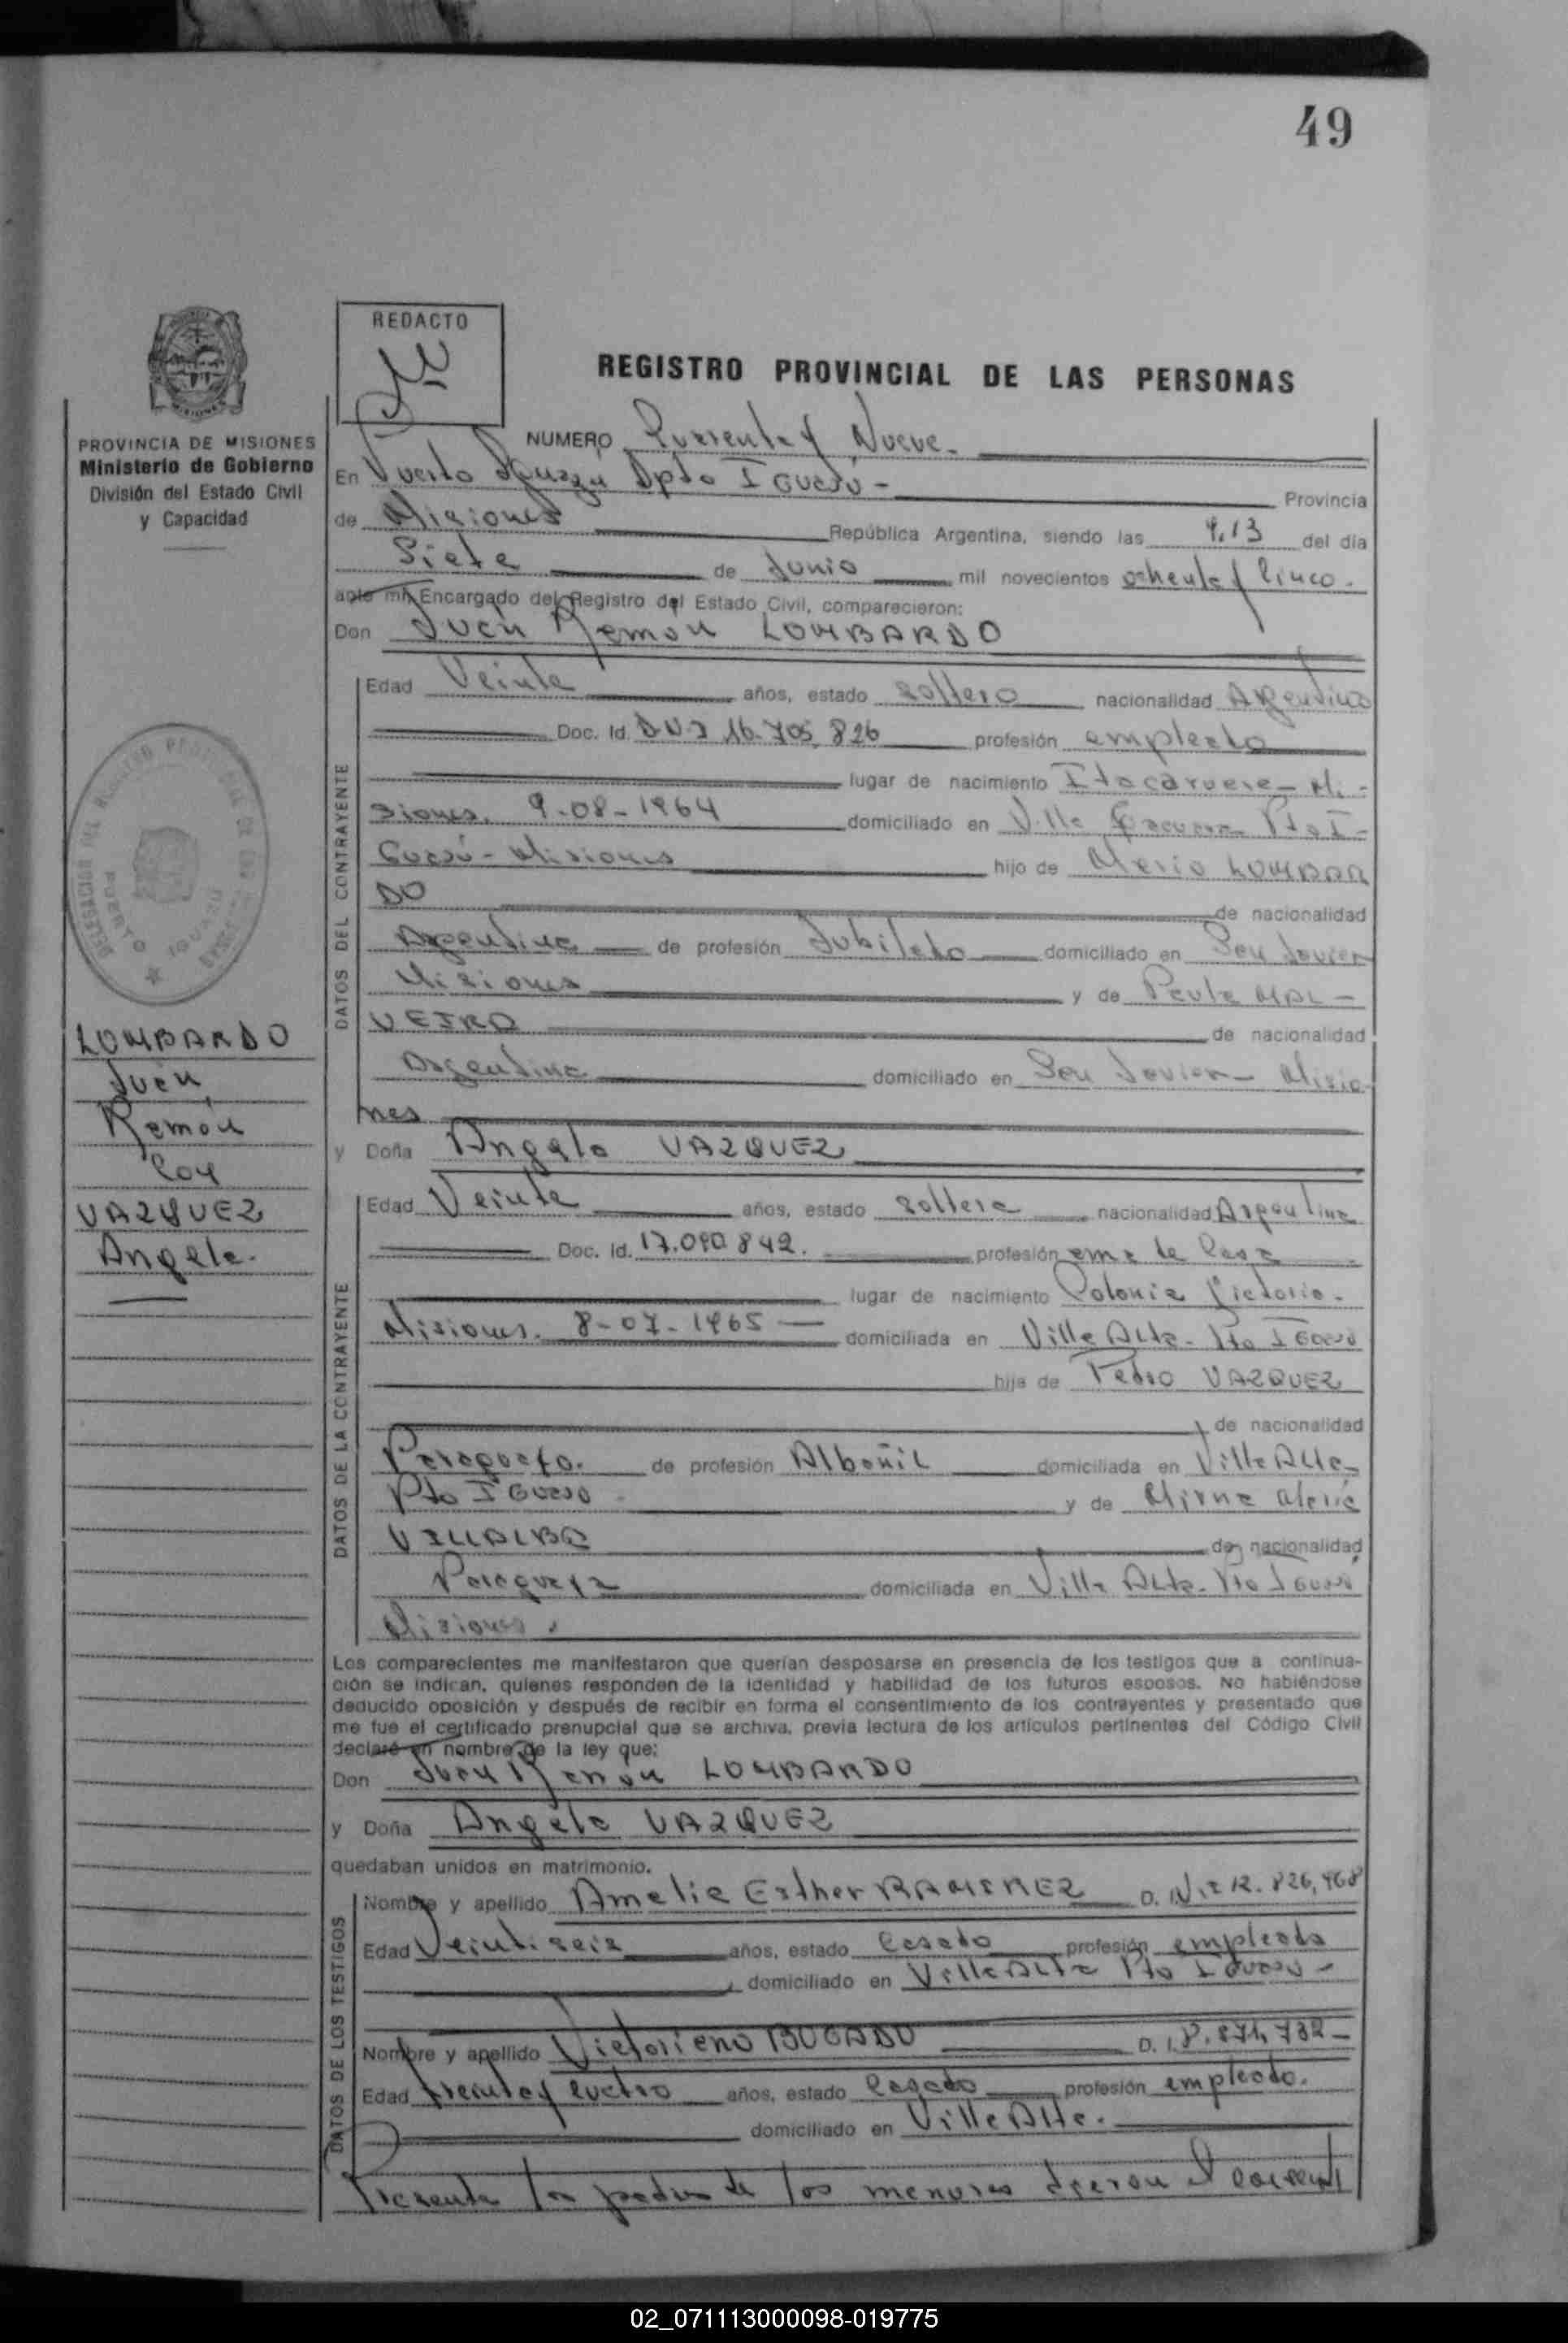 49
REDACTO
REGISTRO PROVINCIAL DE LAS PERSONAS
PROVINCIA DE MISIONES
Ministerio de Gobierno
División del Estado Civil
y Capacidad
NUMERO Cuarenta y Nueve.
En Puerto Iguazu Dpto IGuazú - Provincia
de Misiones República Argentina, siendo las 9.13 del día
Siete de Junio mil novecientos ochenta y Cinco.
ante mí, Encargado del Registro del Estado Civil, comparecieron:
Don Juan Ramón LOMBARDO
Edad Veinte años, estado soltero nacionalidad Argentina
Doc. Id. D N I 16.705.826 profesión empleado
lugar de nacimiento Itacaruare - Mi-
siones. 9-08-1964 domiciliado en Villa Pto I-
Guazú - Misiones hijo de Mario LOMBAR
DO de nacionalidad
Argentina de profesión Jubilado domiciliado en San Javier
Misiones y de Paula MAL-
VEIRA de nacionalidad
Argentina domiciliado en San Javier - Misio
nes
y Doña Angela VAZQUEZ
Edad Veinte años, estado soltera nacionalidad Argentina
Doc. Id. 17.090.842. profesión ama de Casa
lugar de nacimiento Colonia Victoria-
Misiones. 8-07-1965 domiciliada en Villa Alta - Pto IGuazú
hija de Pedro VAZQUEZ
de nacionalidad
Paraguayo. de profesión Albañil domiciliada en Villa Alta-
Pto IGuazú y de Mirna Maria
VILLALBA de nacionalidad
Paraguaya domiciliada en Villa Alta - Pto IGuazú
Misiones.
DATOS DEL CONTRAYENTE
DATOS DE LA CONTRAYENTE
DATOS DE LOS TESTIGOS
LOMBARDO
Juan
Ramón
Con
VAZQUEZ
Angela.
Los comparecientes me manifestaron que querían desposarse en presencia de los testigos que a continua-
ción se indican, quienes responden de la identidad y habilidad de los futuros esposos. No habiéndose
deducido oposición y después de recibir en forma el consentimiento de los contrayentes y presentado que
me fue el certificado prenupcial que se archiva, previa lectura de los artículos pertinentes del Código Civil
declaré en nombre de la ley que:
Don Juan Ramón LOMBARDO
y Doña Angela VAZQUEZ
quedaban unidos en matrimonio.
Nombre y apellido Amelia Esther RAMIREZ D. N.I 12.826.468
Edad Veintiseis años, estado Casada profesión empleada
domiciliado en Villa Alta Pto IGuazú -
Nombre y apellido Victoriano BOGADO D. I. 8.871.732-
Edad treinta y cuatro años, estado Casado profesión empleado.
domiciliado en Villa Alta.
Presente los padres de los menores dieron el
02_071113000098-019775